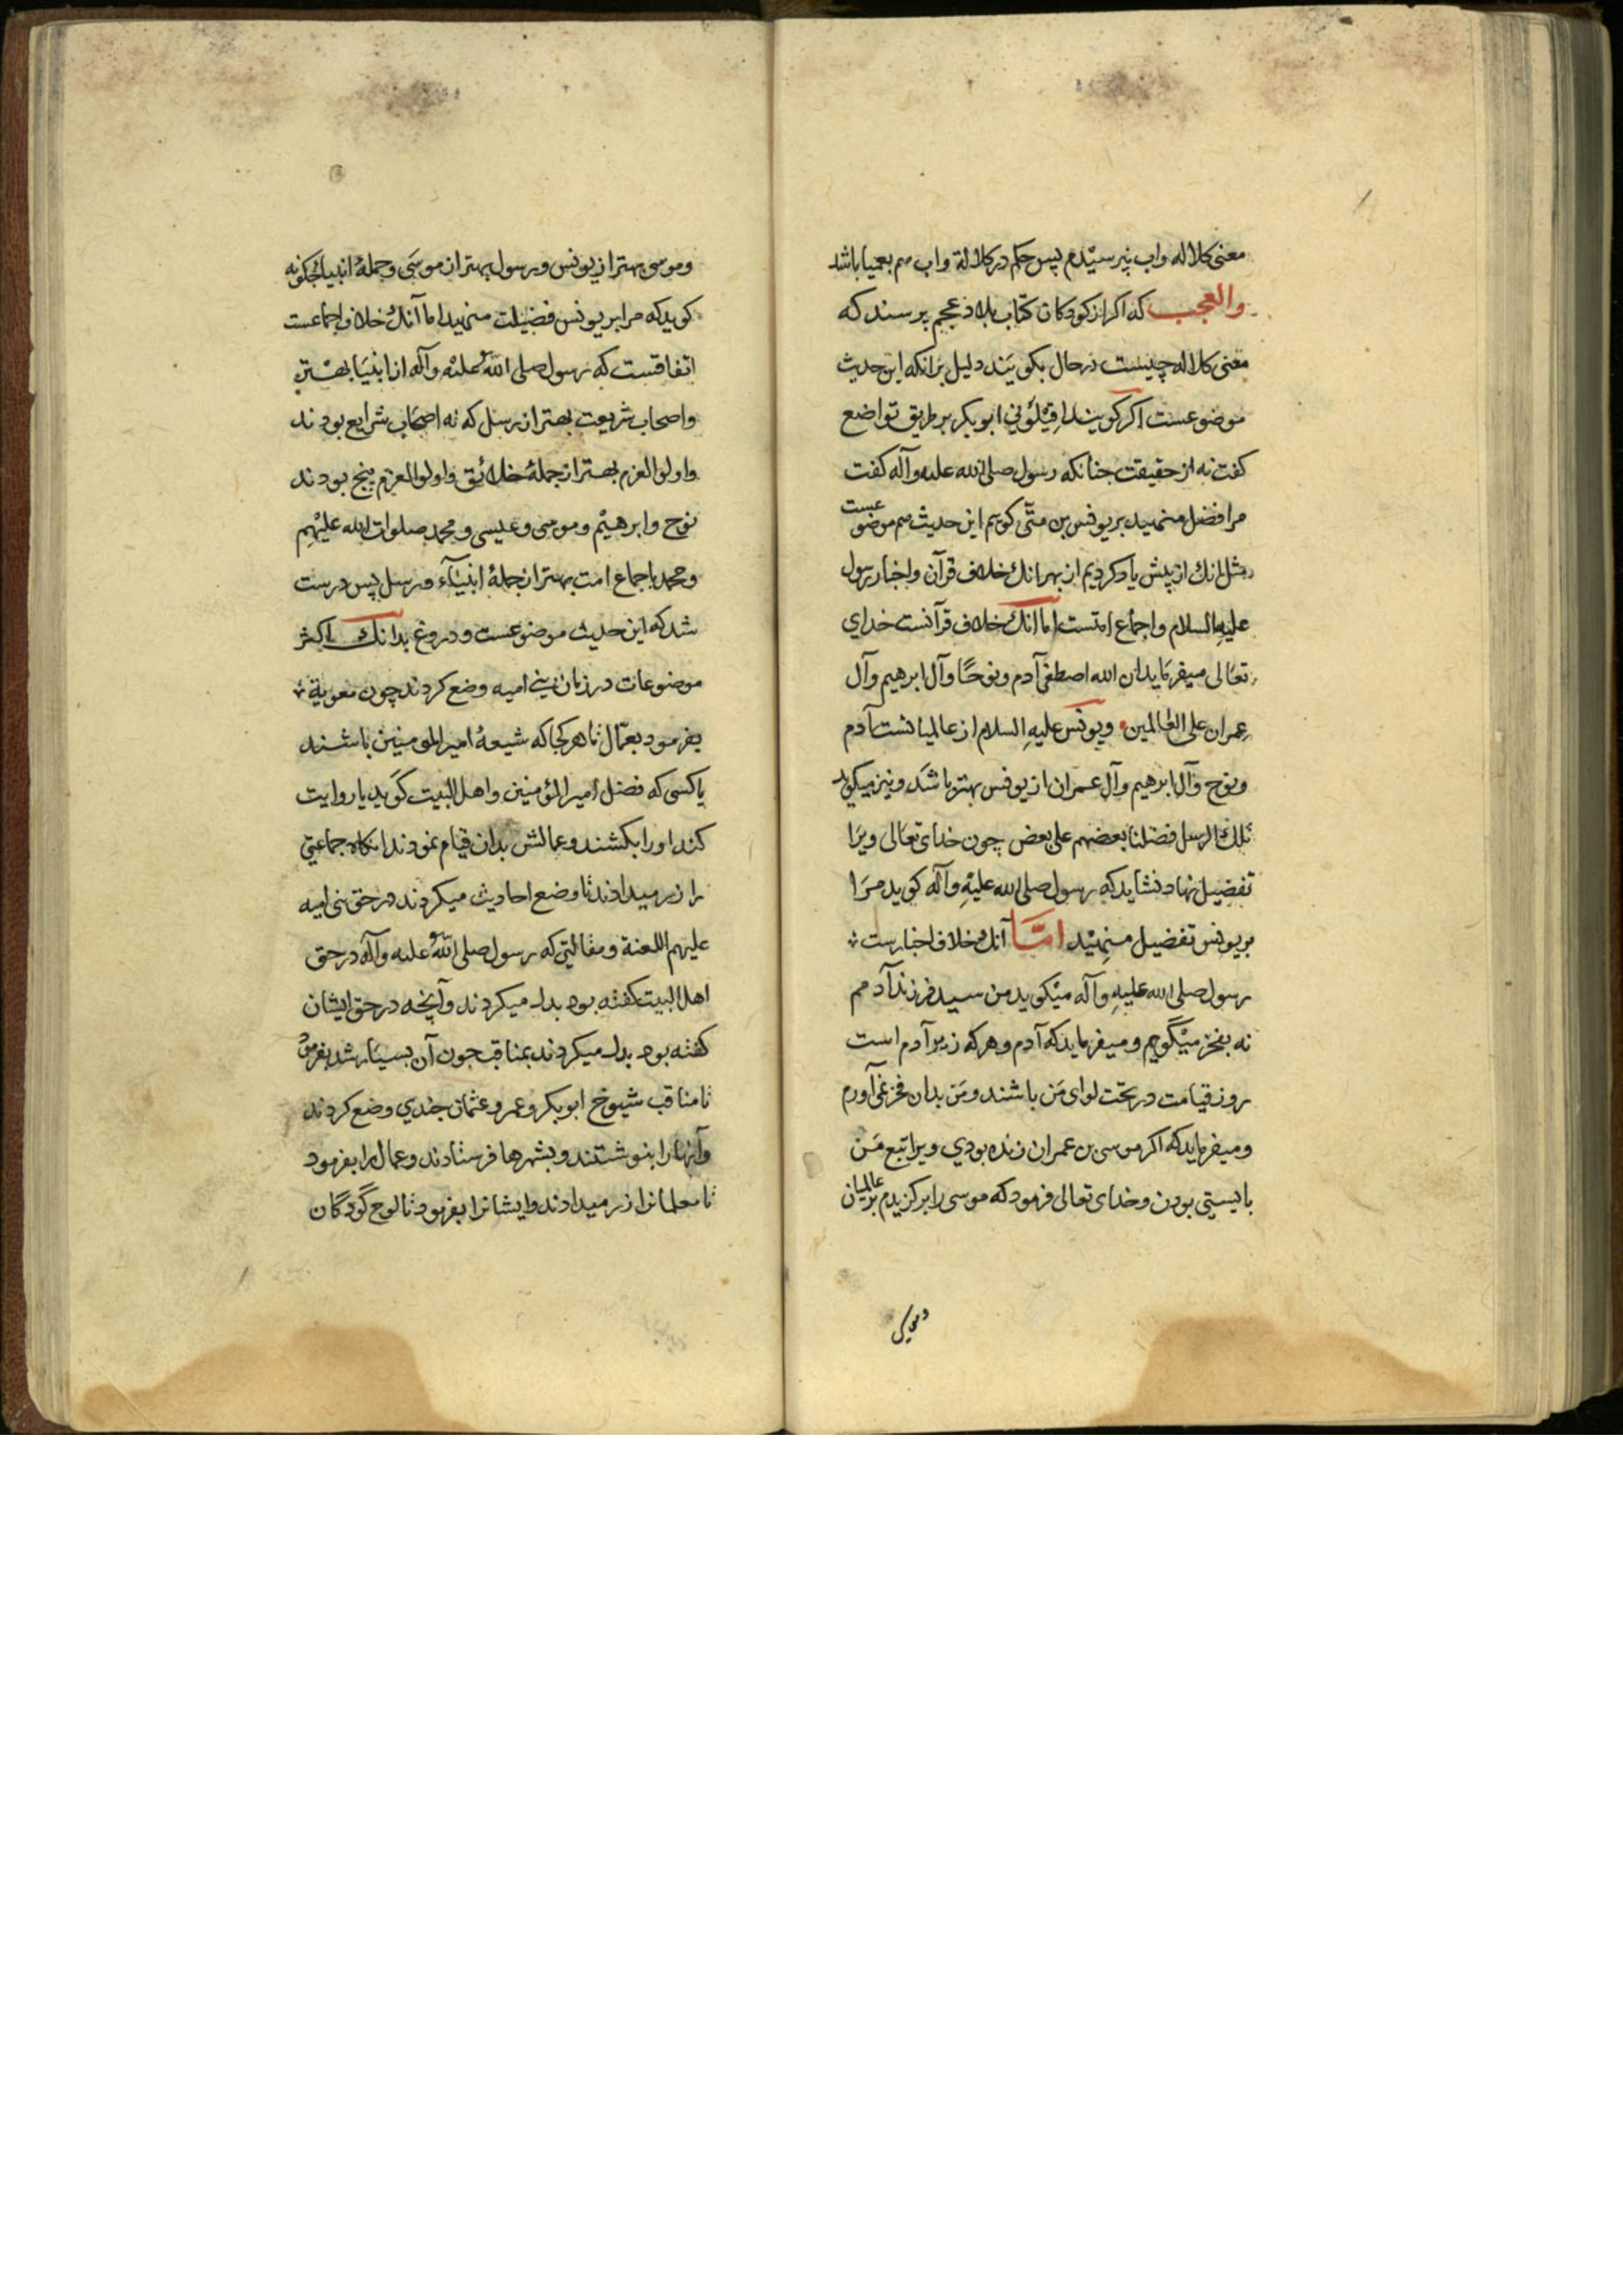 معنی کلاله واب نپرسیدم پس حکم در کلالة واب هم بعمیا باشد
والعجب که اکر از کودکان کتاب بلاد عجم پرسند که
معنی کلاله چیست در حال بکویند دلیل برانکه این حدیث
موضوعست اکر کویند اقیلونی ابوبکر بر طریق تواضع
کفت نه از حقیقت جنانکه رسول صلی الله علیه وآله کفت
مرا فضل منهید بر یونس بن متی کویم این حدیث هم موضوعست
مثل انك از پیش یاد کردیم از بهر انك خلاف قرآن واخبار رسول
علیه السلام واجماع امتست اما انك خلاف قرآنست خدای
تعالی میفرماید ان الله اصطفی آدم ونوحًا وآل ابرهیم وآل
عمران علی العالمین ویونس علیه السلام از عالمیانست آدم
ونوح وآل ابرهیم وآل عمران از یونس بهتر باشد ونیز میکوید
تلك الرسل فضلنا بعضهم علی بعض چون خدای تعالی ویرا
تفضیل نهاد نشاید که رسول صلی الله علیه وآله کوید مرا
بر یونس تفضیل منهید امّا آنك خلاف اخبارست
رسول صلی الله علیه وآله میکوید من سید فرزند آدمم
نه بفخر میگویم ومیفرماید که آدم وهرکه زیر آدم است
روز قیامت در تحت لوای من باشند ومن بدان فخر نمی آورم
ومیفرماید که اکر موسی بن عمران زنده بودی ویرا تبع من
بایستی بودن وخدای تعالی فرمود که موسی را برکزیدم بر عالمیان
وموسی بهتر از یونس ورسول بهتر از موسی وجملهٔ انبیا جکونه
کوید که مرا بر یونس فضیلت منهید اما آنك خلاف اجماعست
اتفاقست که رسول صلی الله علیه وآله از انبیا بهتر
واصحاب شریعت بهتر از رسل که نه اصحاب شرایع بودند
واولوالعزم بهتر از جملهٔ خلائق واولوالعزم پنج بودند
نوح وابرهیم وموسی وعیسی ومحمد صلوات الله علیهم
ومحمد باجماع امت بهتر از جملهٔ انبیآء ورسل پس درست
شد که این حدیث موضوعست ودروغ بدانك اکثر
موضوعات در زمان بنی امیه وضع کردند چون معویة
بفرمود بعمّال تا هرکجا که شیعهٔ امیرالمومنین باشند
یا کسی که فضل امیرالمؤمنین واهل البیت کوید یا روایت
کند اورا بکشند وعمالش بدان قیام نمودند انکاه جماعتی
را زر میدادند تا وضع احادیث میکردند در حق بنی امیه
علیهم اللعنة ومقالتی که رسول صلی الله علیه وآله در حق
اهل البیت کفته بود بدل میکردند وآنچه در حق ایشان
کفته بود بدل میکردند بمناقب جون آن بسیار شد بفرمود
تا مناقب شیوخ ابوبکر وعمر وعثمان جندی وضع کردند
وآنها را بنوشتند وبشهرها فرستادند وعمال را بفرمود
تا معلمانرا زر میدادند وایشانرا بفرمود تا لوح کودکان